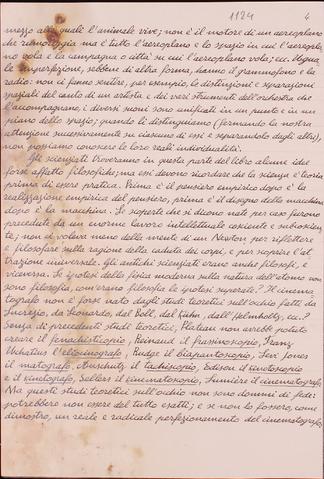 1124 4
mezzo al quale l'animale vive; non è il motore di un aereoplano
che rimorchia ma è tutto l'aereoplano e lo spazio in cui l'aereopla-
no vola e la campagna o città su cui l'aereoplano vola; ecc. Ugua-
le imperfezione, sebbene di altra forma, hanno il grammofono e la
radio: non ci fanno sentire, per esempio, le distinzioni e separazioni
spaziali del canto di un artista e dei vari strumenti dell'orchestra che
l'accompagnano, i diversi suoni sono unificati in un punto e in un
piano dello spazio; quando li distinguiamo (fermando la nostra
attenzione successivamente su ciascuno di essi e separandolo dagli altri),
non possiamo conoscere le loro reali individualità.
Gli scienziati troveranno in questa parte del libro alcune idee
forse affatto filosofiche; ma essi devono ricordare che la scienza è teoria
prima di essere pratica. Prima è il pensiero empirico dopo è la
realizzazione empirica del pensiero, prima è il disegno della macchina
dopo è la macchina. Le scoperte che si dicono nate per caso furono
precedute da un enorme lavoro intellettuale cosciente e subcoscien-
te; non ci voleva meno della mente di un Newton per riflettere
e filosofare sulla ragione della caduta dei corpi, e per scoprire l'at-
trazione universale. Gli antichi scienziati erano anche filosofi, e
viceversa. Le ipotesi della fisica moderna sulla natura dell'atomo non
sono filosofia, com'erano filosofia le ipotesi superate? Il cinema-
tografo non è forse nato dagli studi teoretici sull'occhio fatti da
Lucrezio, da Leonardo, dal Boll, dal Kühn, dall'Helmholtz, ecc.?
Senza di precedenti studi teoretici, Plateau non avrebbe potuto
creare il fenachisticopio, Reinaud il prassinoscopio, Franz
Uchatius l'eliocinografo, Rudge il biapantoscopio, Levi Jones
il motografo, Anschütz il tachiscopio, Edison il cinetoscopio
e il kinetografo, Sellers il cinematoscopio, Lumière il cinematografo.
Ma questi studi teoretici sull'occhio non sono dommi di fede:
potrebbero non essere del tutto esatti; e se non lo fossero, come
dimostro, un reale e radicale perfezionamento del cinematografo,